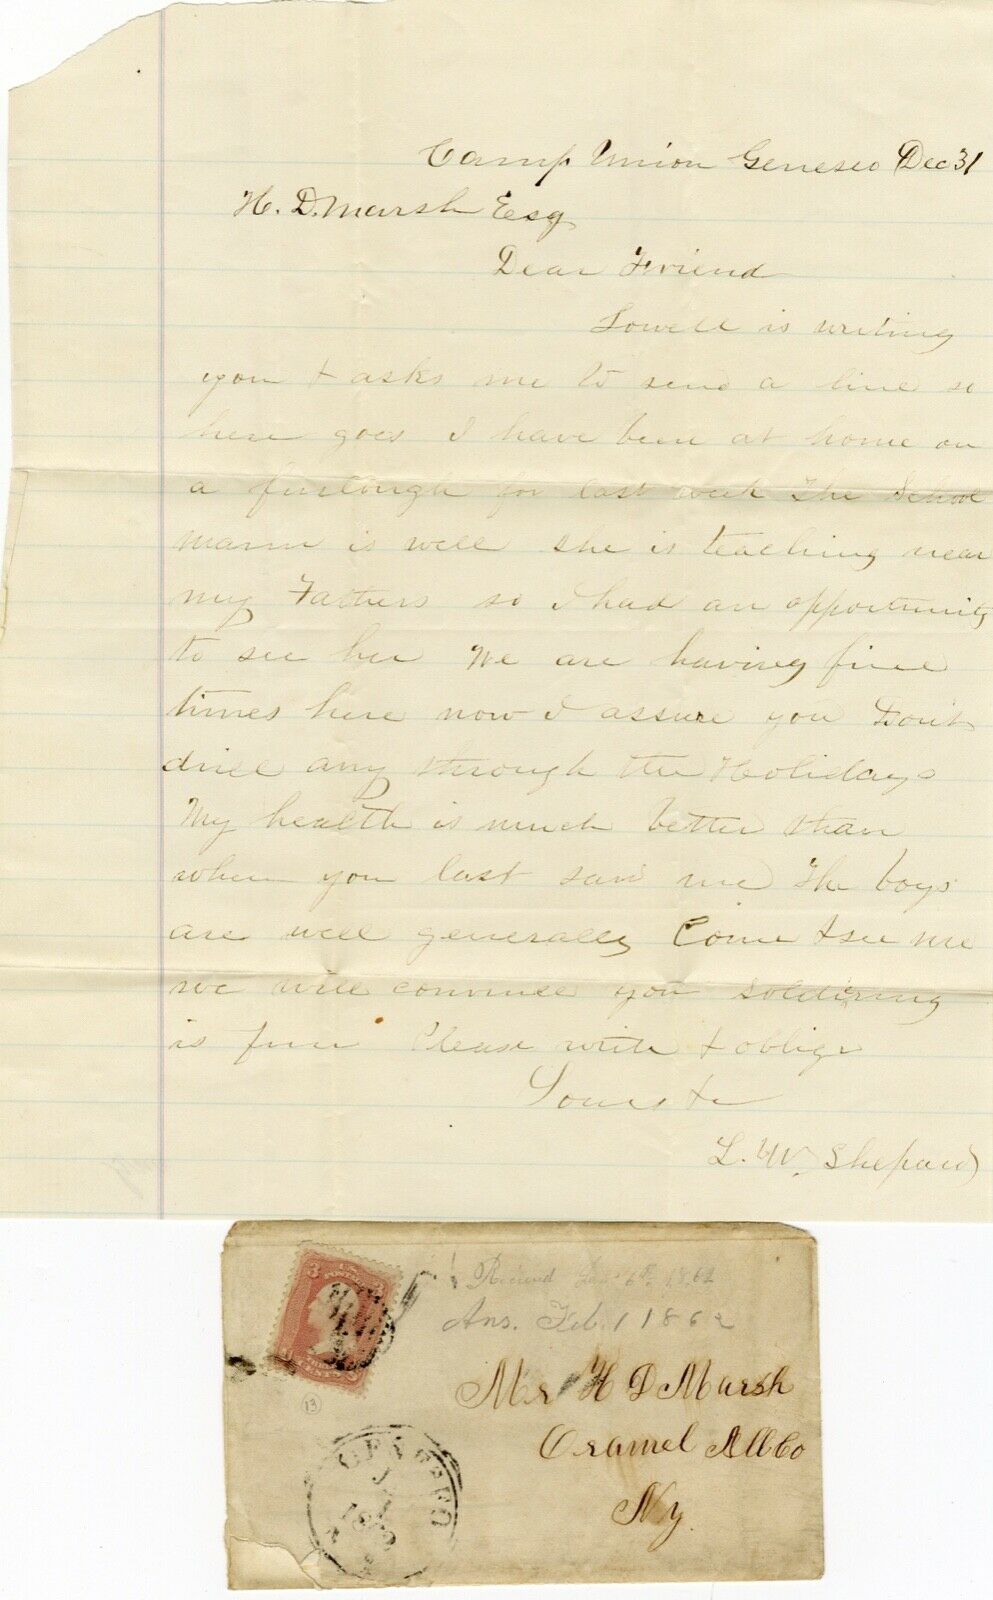 Camp Union Geneseo Dec 31
H. D. Marsh Esq
Dear Friend
Lowell is writing
you & asks me to send a line so
here goes I have been at home on
a furlough for last week The School
marm is well she is teaching near
my Fathers so I had an opportunity
to see her We are having fine
times here now I assure you Dont
drill any through the Holidays
My health is much better than
when you last saw me The boys
are well generally Come & see me
we will convince you soldiering
is fun Please write & oblige
Yours &c
L. W. Shepard
Received 6th, 1862
Ans. Feb. 1 1862
Mr H D Marsh
Oramel All Co
Ny.
3 3
CENTS
13
GENESEO